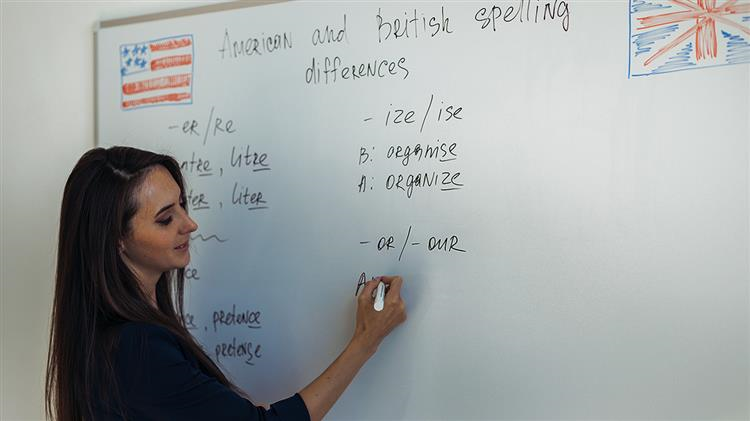 American and British spelling
differences
-er/re
ntre, litre
ter, liter
ce
ce, pretence
pretense
- ize/ise
B: organise
A: organize
- or/- our
A